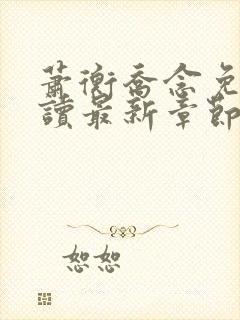 蕭衡喬念免
讀最新章節
恕恕